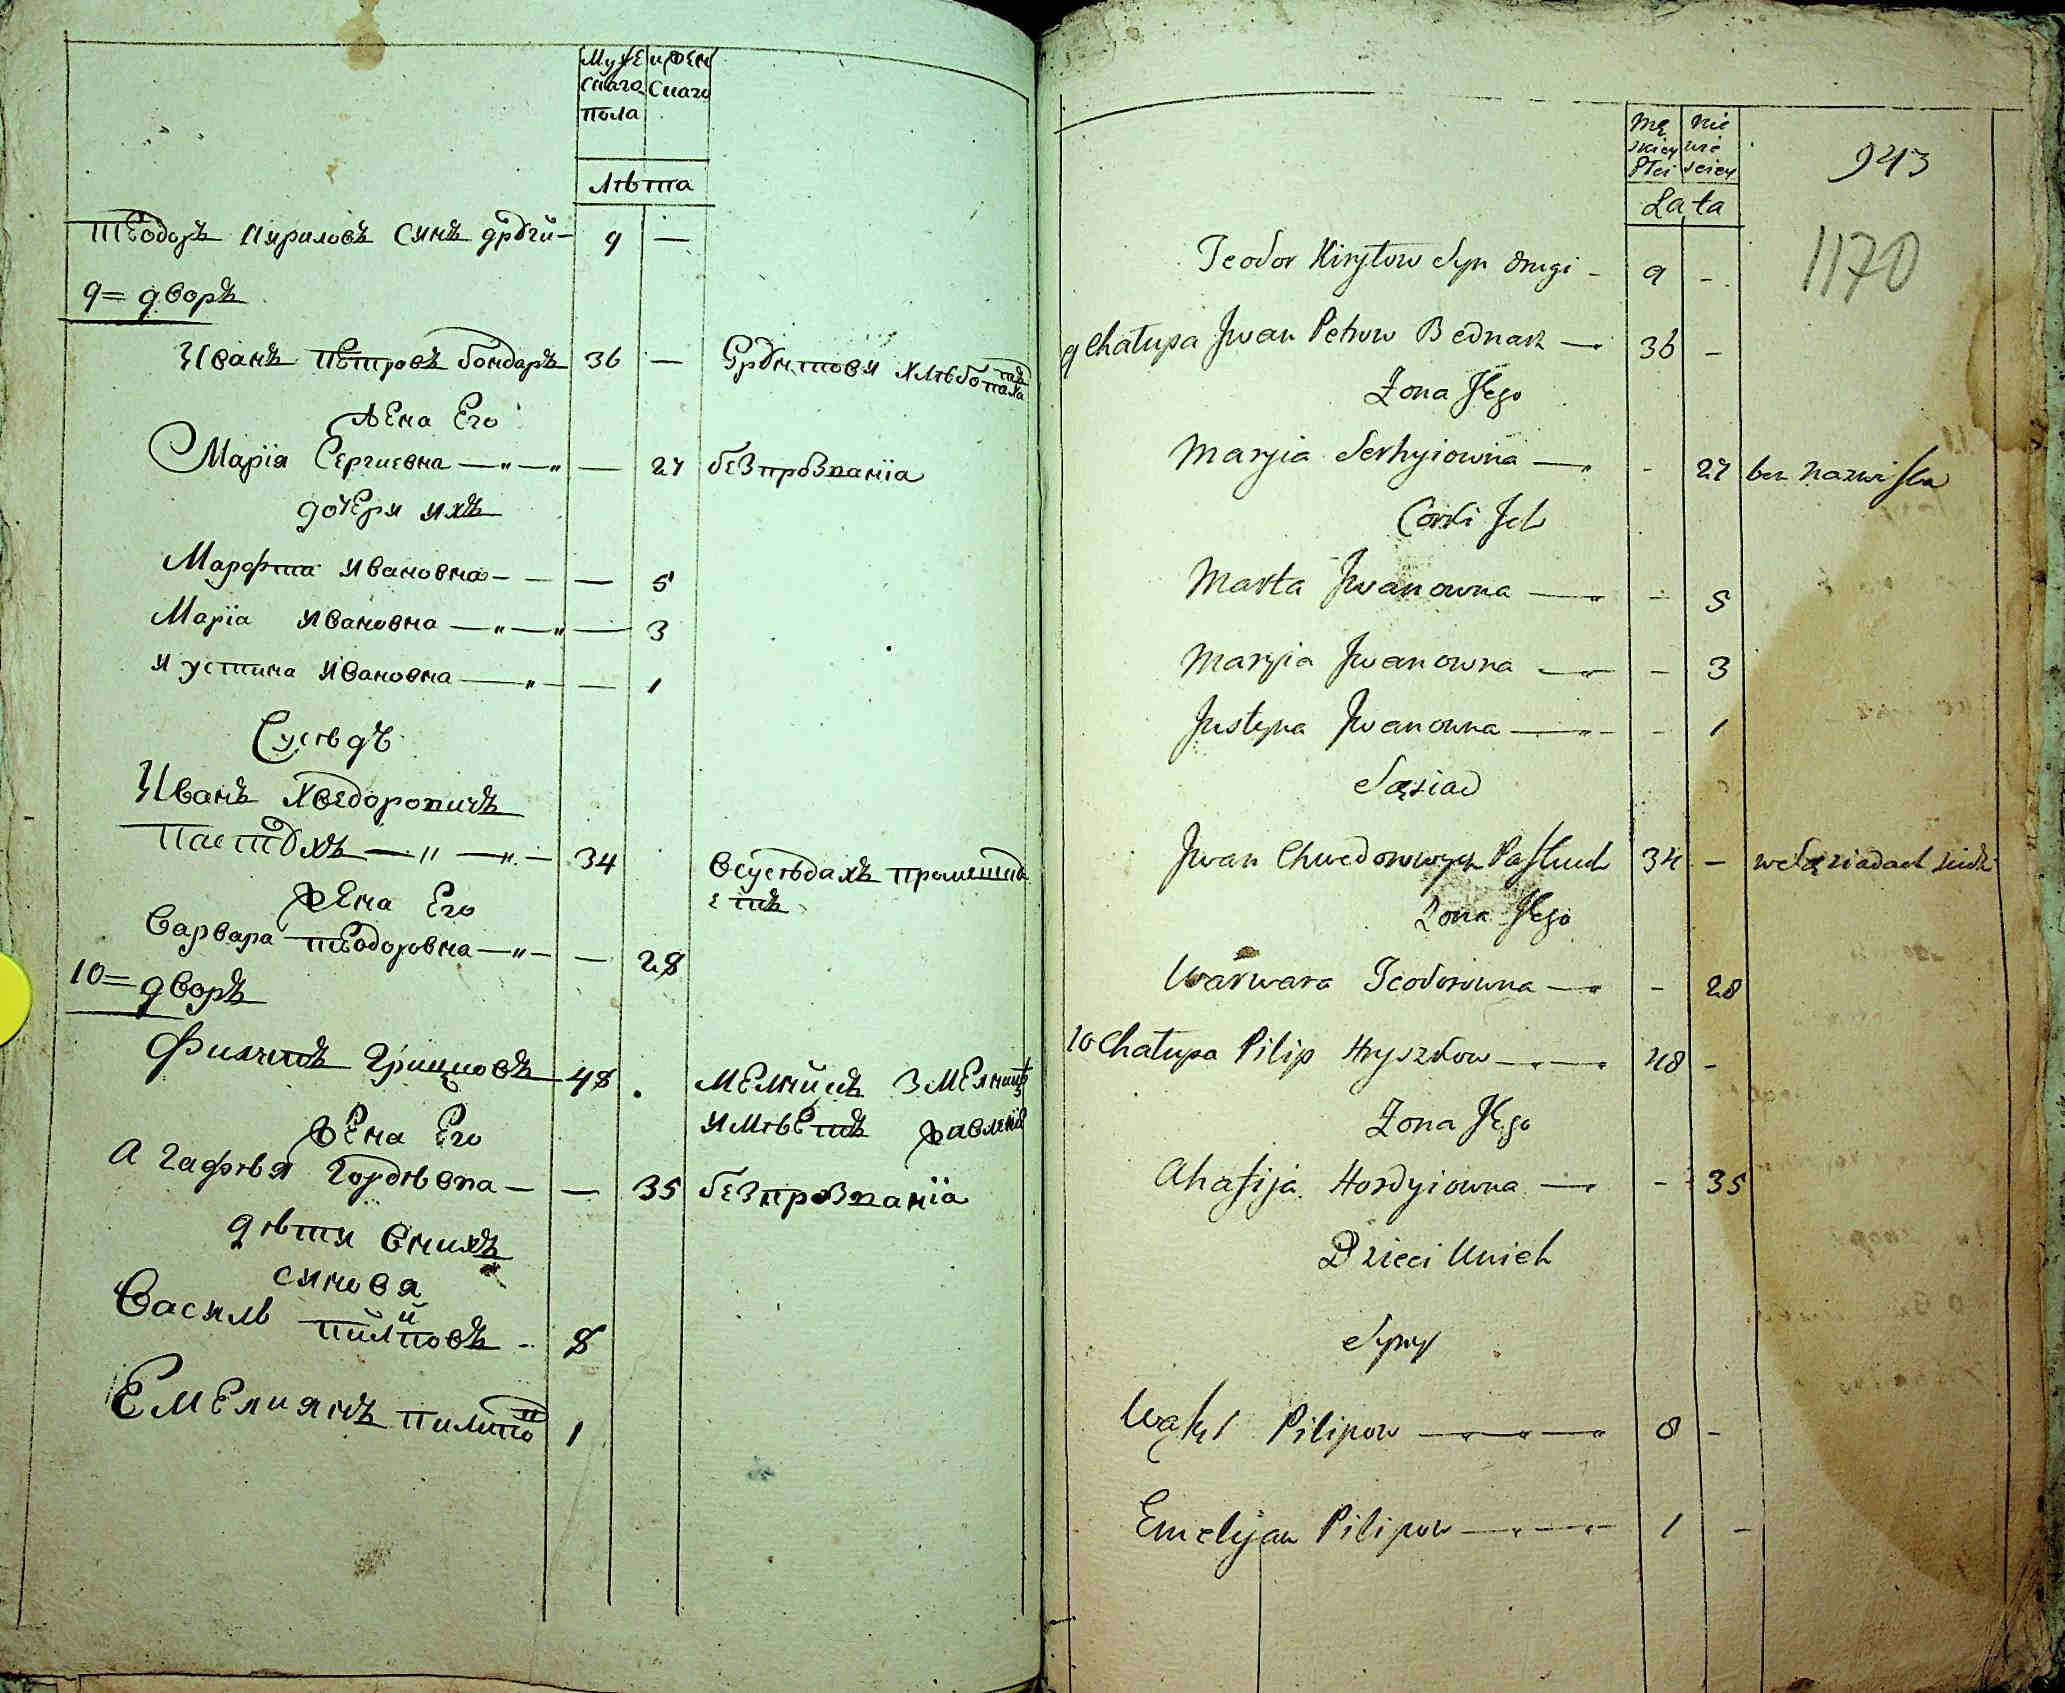 Муже и жен
скаго скаго
пола
Лѣта
Теодоръ Кириловъ синъ другй — 9 —
9 = дворъ
Иванъ Петровъ бондаръ 36 — Грунтовй хлѣбопа
жена Его
Марія Сергиевна — „ — „ — 27 без прозванїа
дочери ихъ
Марфта Ивановна - — — 5
Маріа Ивановна — „ — „ — 3
Иустина Ивановна — „ — — 1
Сусѣдъ
Иванъ Хведоровичъ
Пастухъ — „ — „ — 34 В сусѣдахъ
жена Его
Варвара Теодоровна — „ — — 28
10 = дворъ
Филипъ Грицковъ 48 . Мелникъ З мелницѣ
жена Его имѣетъ
Агафѣя Гордѣевна — — 35 без прозванїа
дѣти в нихъ
синовя
Василь Пилиповъ - 8
Емелиянъ Пилипо 1
Mę Nie
skiey wie
Płci sciey
943
Lata
1170
Teodor Kiryłow Syn drugi - 9 -
9 Chałupa Jwan Petrow Bednarz — 36 -
Żona Jego
Maryia Serhyiowna — - 27 bez nazwiska
Corki Jch
Marta Jwanowna — - 5
Maryia Jwanowna — - 3
Justyna Jwanowna — - 1
Sąsiad
Jwan Chwedorowycz Pastuch 34 - w Sąsiadach siedzi
Żona Jego
Warwara Teodorowna — - 28
10 Chałupa Pilip Hryszkow — 48 -
Żona Jego
Ahafija Hordyiowna — - 35
Dzieci U nich
Syny
Wasyl Pilipow — 8 -
Emelyan Pilipow — 1 -